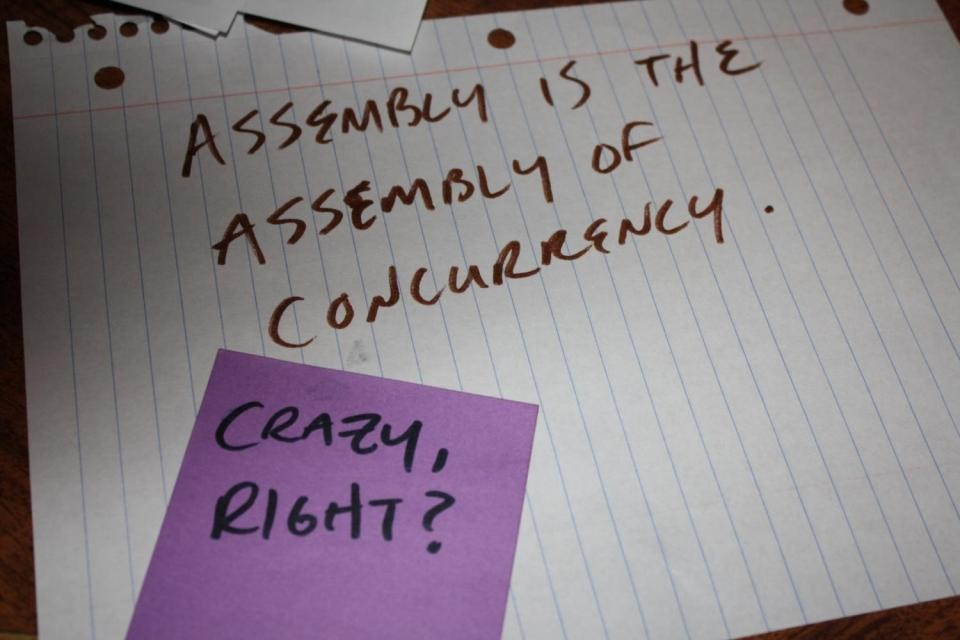 ASSEMBLY IS THE
ASSEMBLY OF
CONCURRENCY.
CRAZY,
RIGHT?